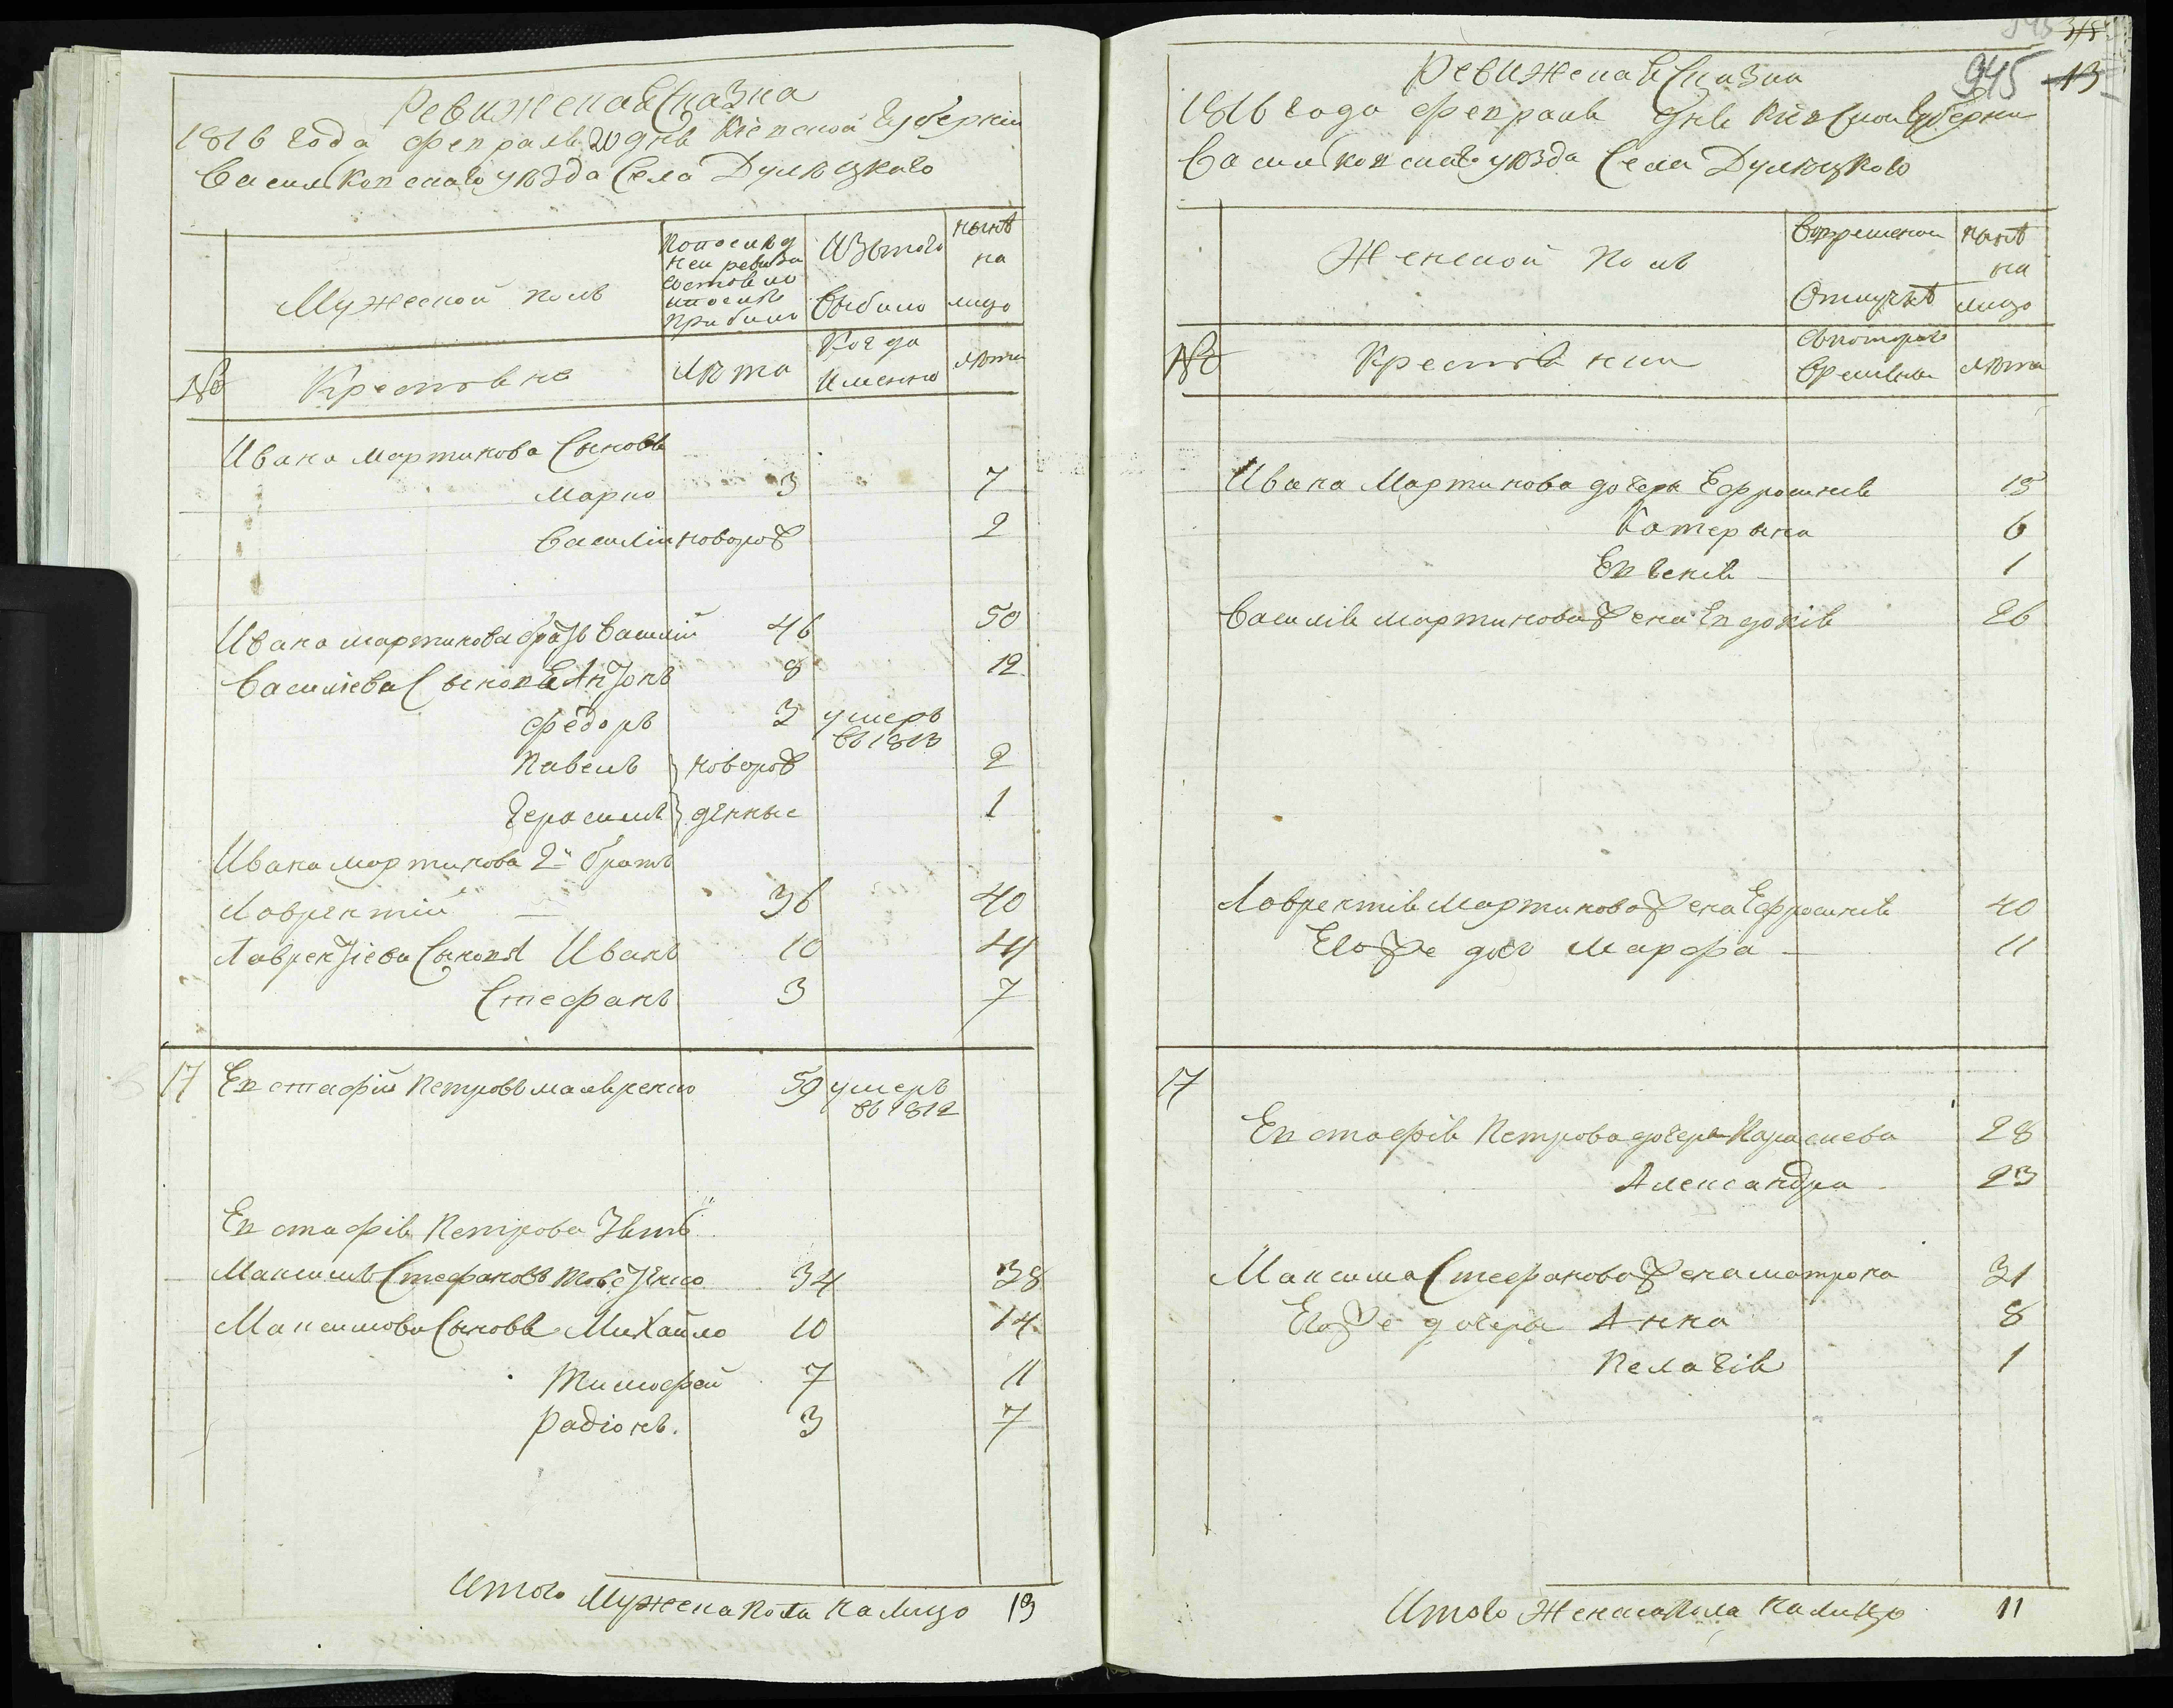 Ревижская Сказка
1816 года февраля 20 дня Кіевской Губерніи
Василковскаго уѣзда Села Дулѣцкаго
Мужеской полъ
По последней ревизіи состояло и после прибыло
Изъ того выбыло
нынѣ на лицо
№ Крестьяне
Лѣта
Когда именно
лѣта
Ивана Мартинова Сыновья
Марко 3 7
Василій новорож 2
Ивана Мартинова братъ Василій 46 50
Василіева Сыновья Антонъ 8 12
Федоръ 3 умеръ
въ 1813
Павелъ новорож 2
Герасимъ денные 1
Ивана Мартинова 2й братъ
Лаврентій 36 40
Лаврентіева Сыновя Иванъ 10 14
Стефанъ 3 7
17 Евстафій Петровъ 59 умеръ
въ 1812
Евстафія Петрова зять
Максимъ Стефановъ 34 38
Максимова Сыновья Михайло 10 14
Тимофей 7 11
Радіонъ. 3 7
Итого Мужеска пола на лицо 13
945 13
Ревижская Сказка
1816 года февраля дня Кіевской Губерніи
Василковскаго уѣзда Села Дулѣцкаго
Женской полъ
Во временной отлучкѣ
нынѣ на лицо
№ Крестьянки
Съ котораго времени
лѣта
Ивана Мартинова дочери Ефросинія 15
Катерина 6
Евгенія 1
Василія Мартинова жена Евдокія 26
Лаврентія Мартинова жена Ефросинія 40
Его же дочь Марфа 11
17
Евстафія Петрова дочери Параскева 28
Александра 23
Максима Стефанова жена Матрона 31
Его же дочери Анна 8
Пелагія 1
Итого Женска пола на лицо 11